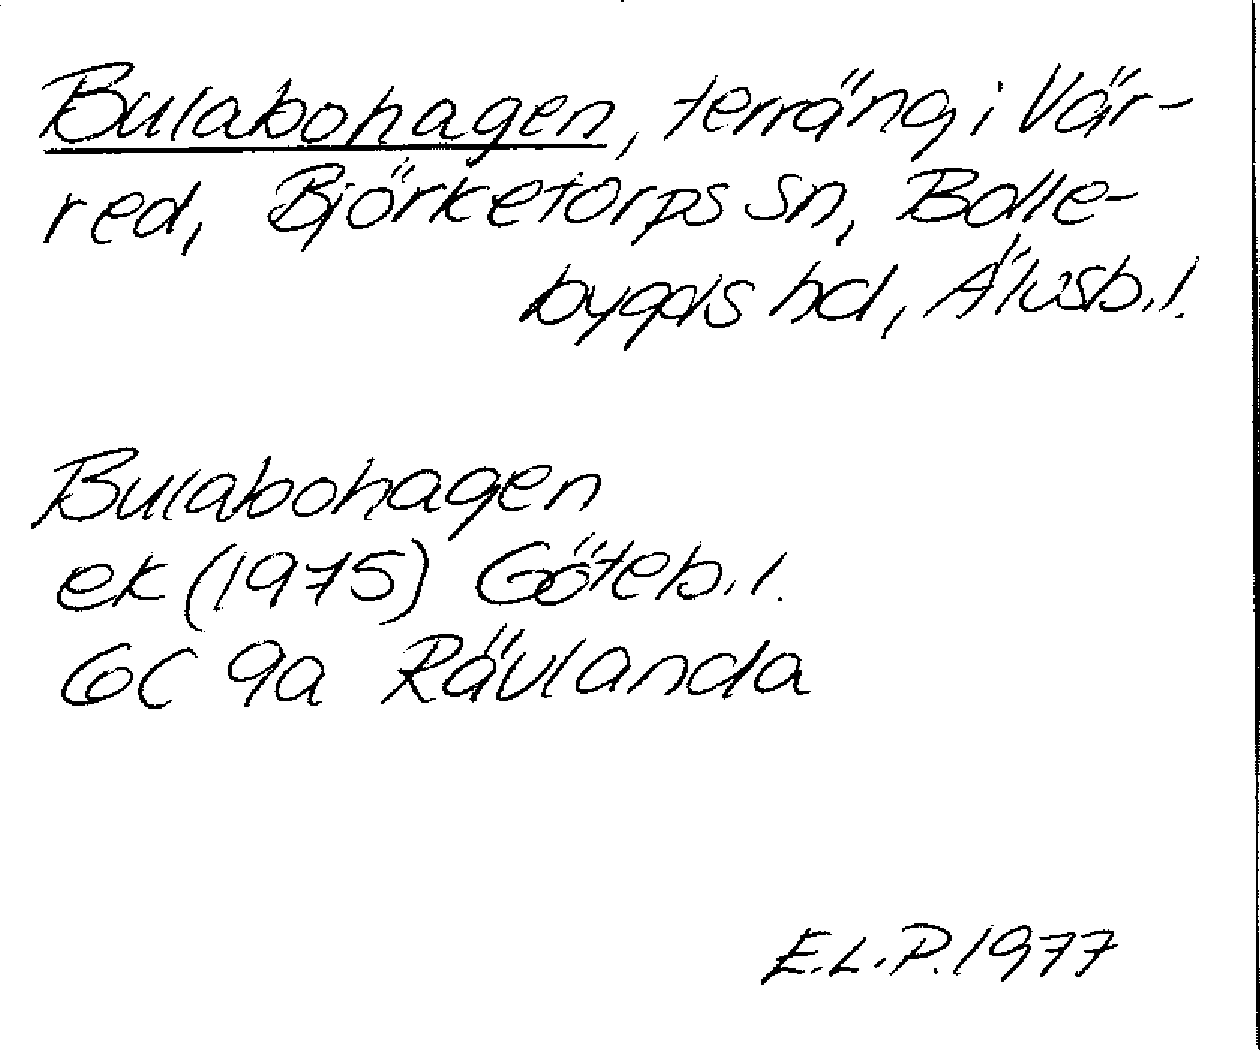 Bulabohagen, terräng i Vär-
red, Björketorps sn, Bolle-
bygds hd, Älvsb. l.
Bulabohagen
ek (1975) Göteb. l.
6C 9a Rävlanda
E.L.P. 1977